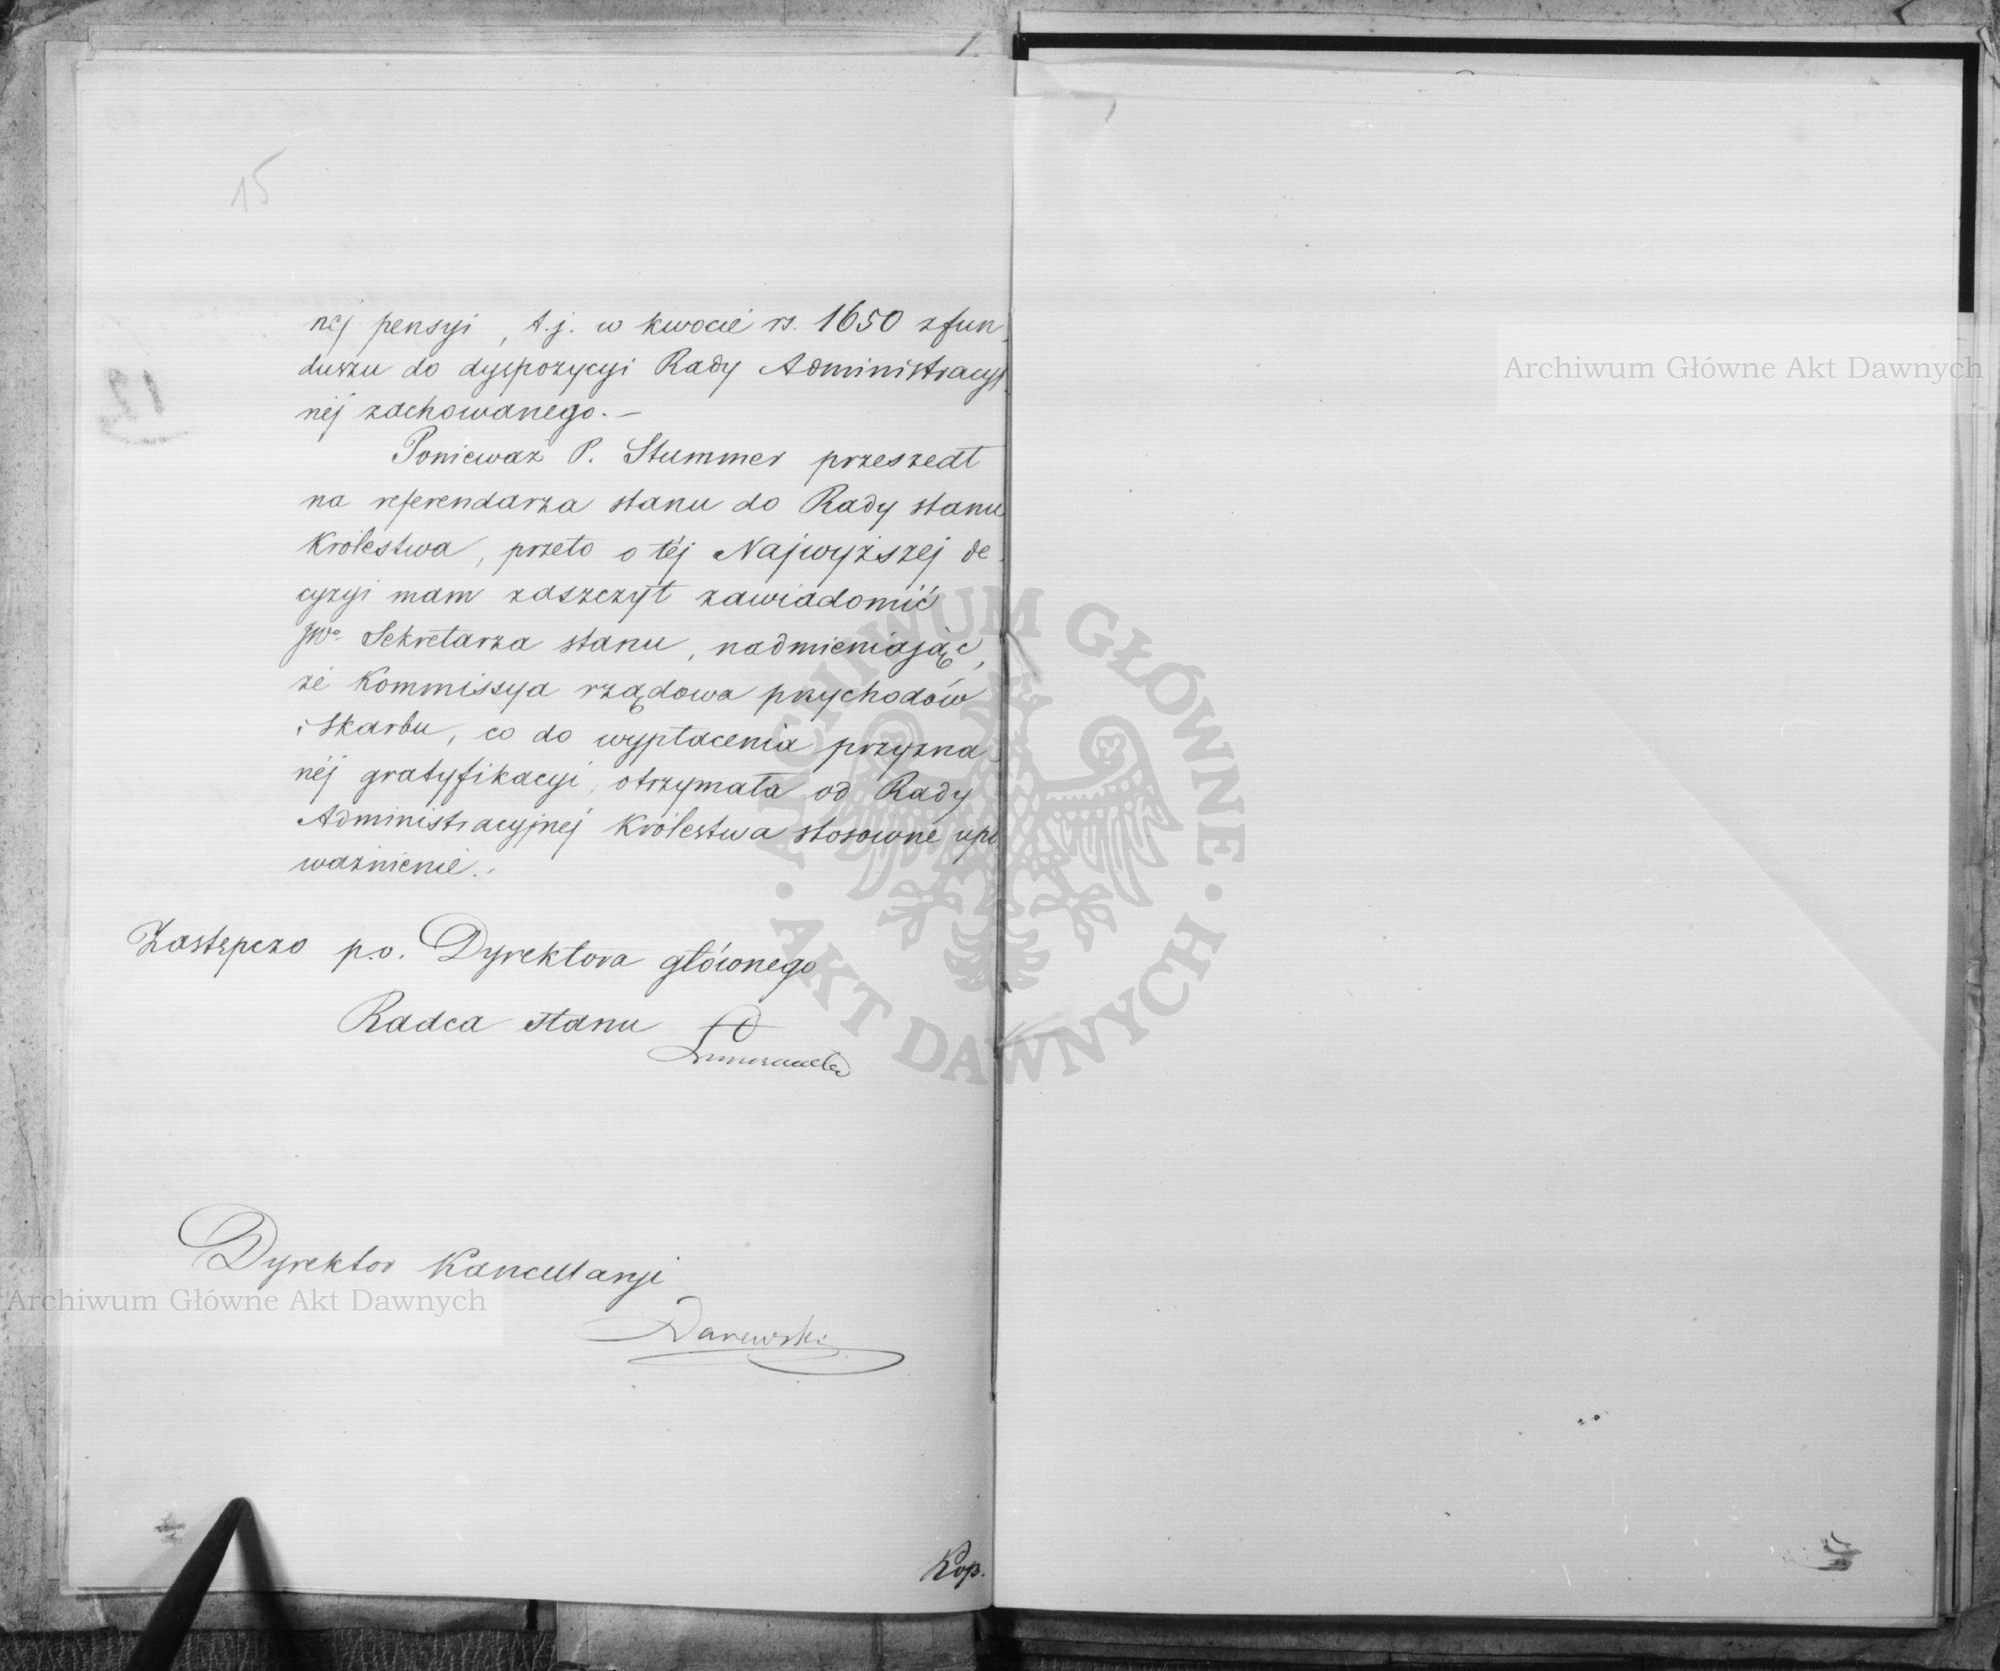 15
néj pensyi, t.j. w kwocie rs. 1650 z fun
duszu do dyspozycyi Rady Administracyj
néj zachowanego. —
Ponieważ P. Stummer przeszedł
na referendarza stanu do Rady stanu
Królestwa, przeto o téj Najwyższej de
cyzyi mam zaszczyt zawiadomić
JWo Sekretarza stanu, nadmieniając,
że Kommissya rządowa przychodów
i skarbu, co do wypłacenia przyzna
néj gratyfikacyi, otrzymała od Rady
Administracyjnej Królestwa stosowne upo
ważnienie.
Zastępczo p.o. Dyrektora głównego
Radca stanu
Dyrektor Kancellaryi
Darewski
Kop.
Archiwum Główne Akt Dawnych
Archiwum Główne Akt Dawnych
ARCHIWUM GŁÓWNE
AKT DAWNYCH